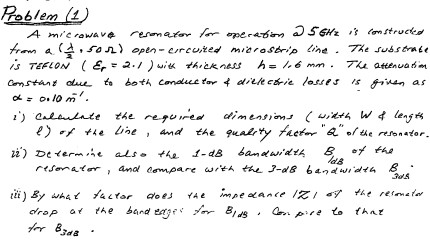 Problem (1)
A microwave resonator for operation @ 5 GHz is constructed
from a (λ/2, 50 Ω) open-circuited microstrip line. The substrate
is TEFLON (Er = 2.1) with thickness h = 1.6 mm. The attenuation
constant due to both conductor & dielectric losses is given as
α = 0.10 m⁻¹.
i) Calculate the required dimensions (width W & length
l) of the line, and the quality factor "Q" of the resonator.
ii) Determine also the 1-dB bandwidth B1dB of the
resonator, and compare with the 3-dB bandwidth B3dB.
iii) By what factor does the impedance |Z| of the resonator
drop at the band edges for B1dB. Compare to that
for B3dB.